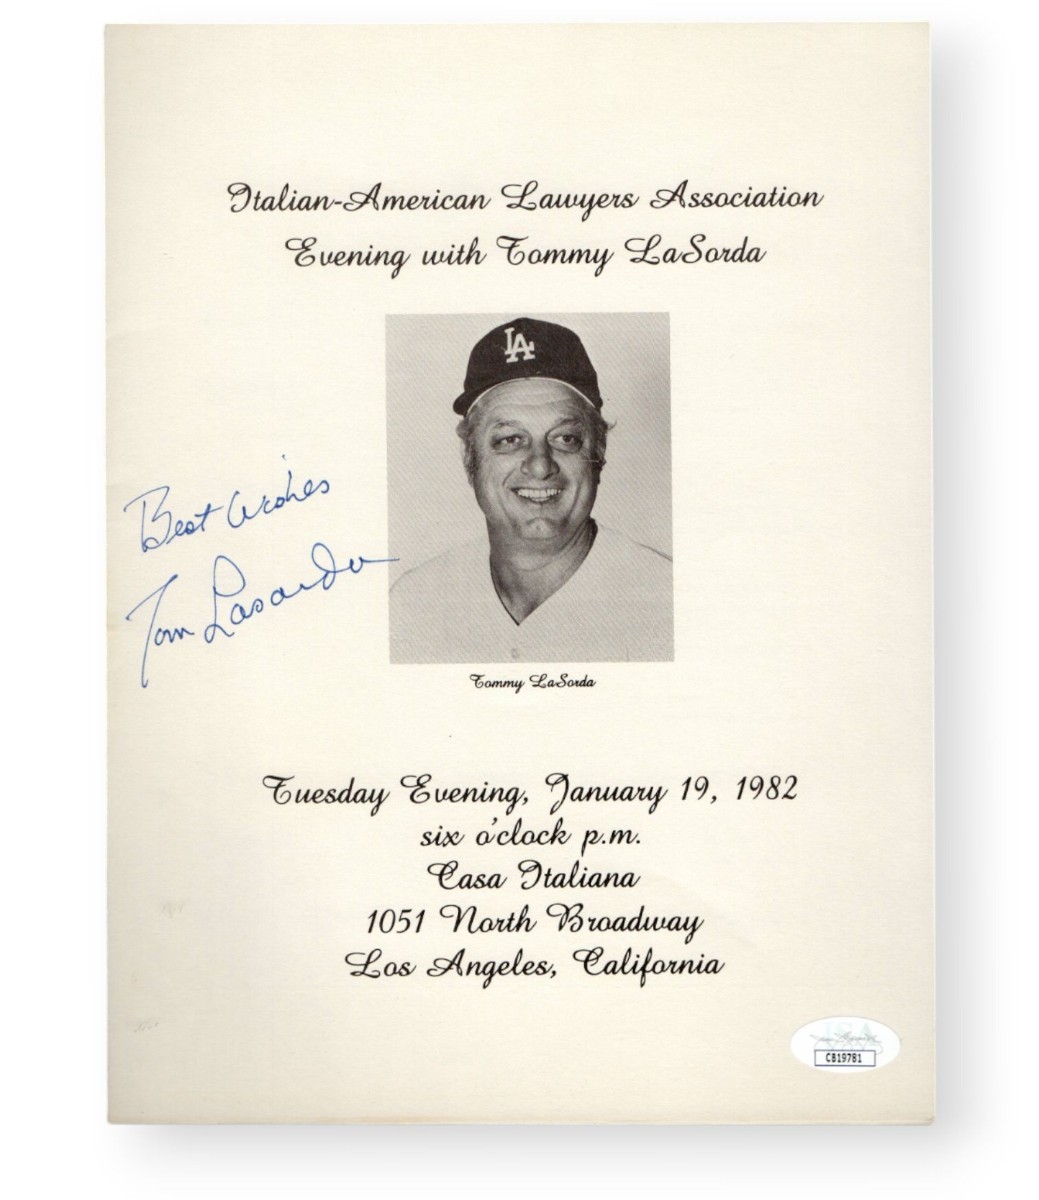 Italian-American Lawyers Association
Evening with Tommy LaSorda
LA
Best Wishes
Tom Lasorda
Tommy LaSorda
Tuesday Evening, January 19, 1982
six o'clock p.m.
Casa Italiana
1051 North Broadway
Los Angeles, California
CB19781